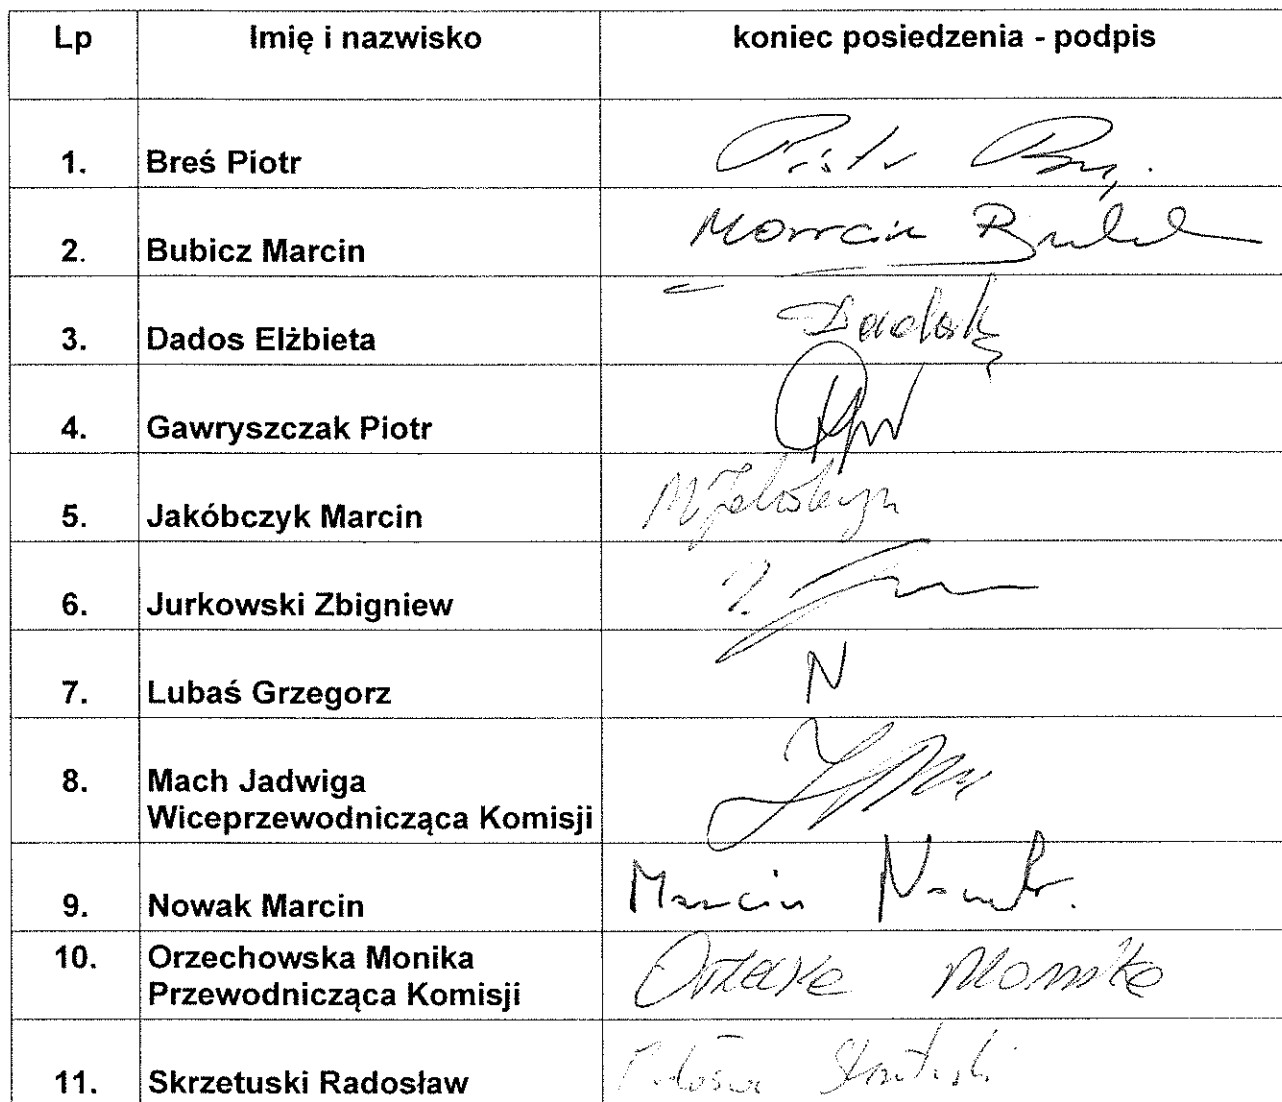 Lp Imię i nazwisko koniec posiedzenia - podpis
1. Breś Piotr Piotr
2. Bubicz Marcin Marcin
3. Dados Elżbieta
4. Gawryszczak Piotr
5. Jakóbczyk Marcin
6. Jurkowski Zbigniew
7. Lubaś Grzegorz N
8. Mach Jadwiga
Wiceprzewodnicząca Komisji
9. Nowak Marcin Marcin Nowak.
10. Orzechowska Monika Monika
Przewodnicząca Komisji
11. Skrzetuski Radosław